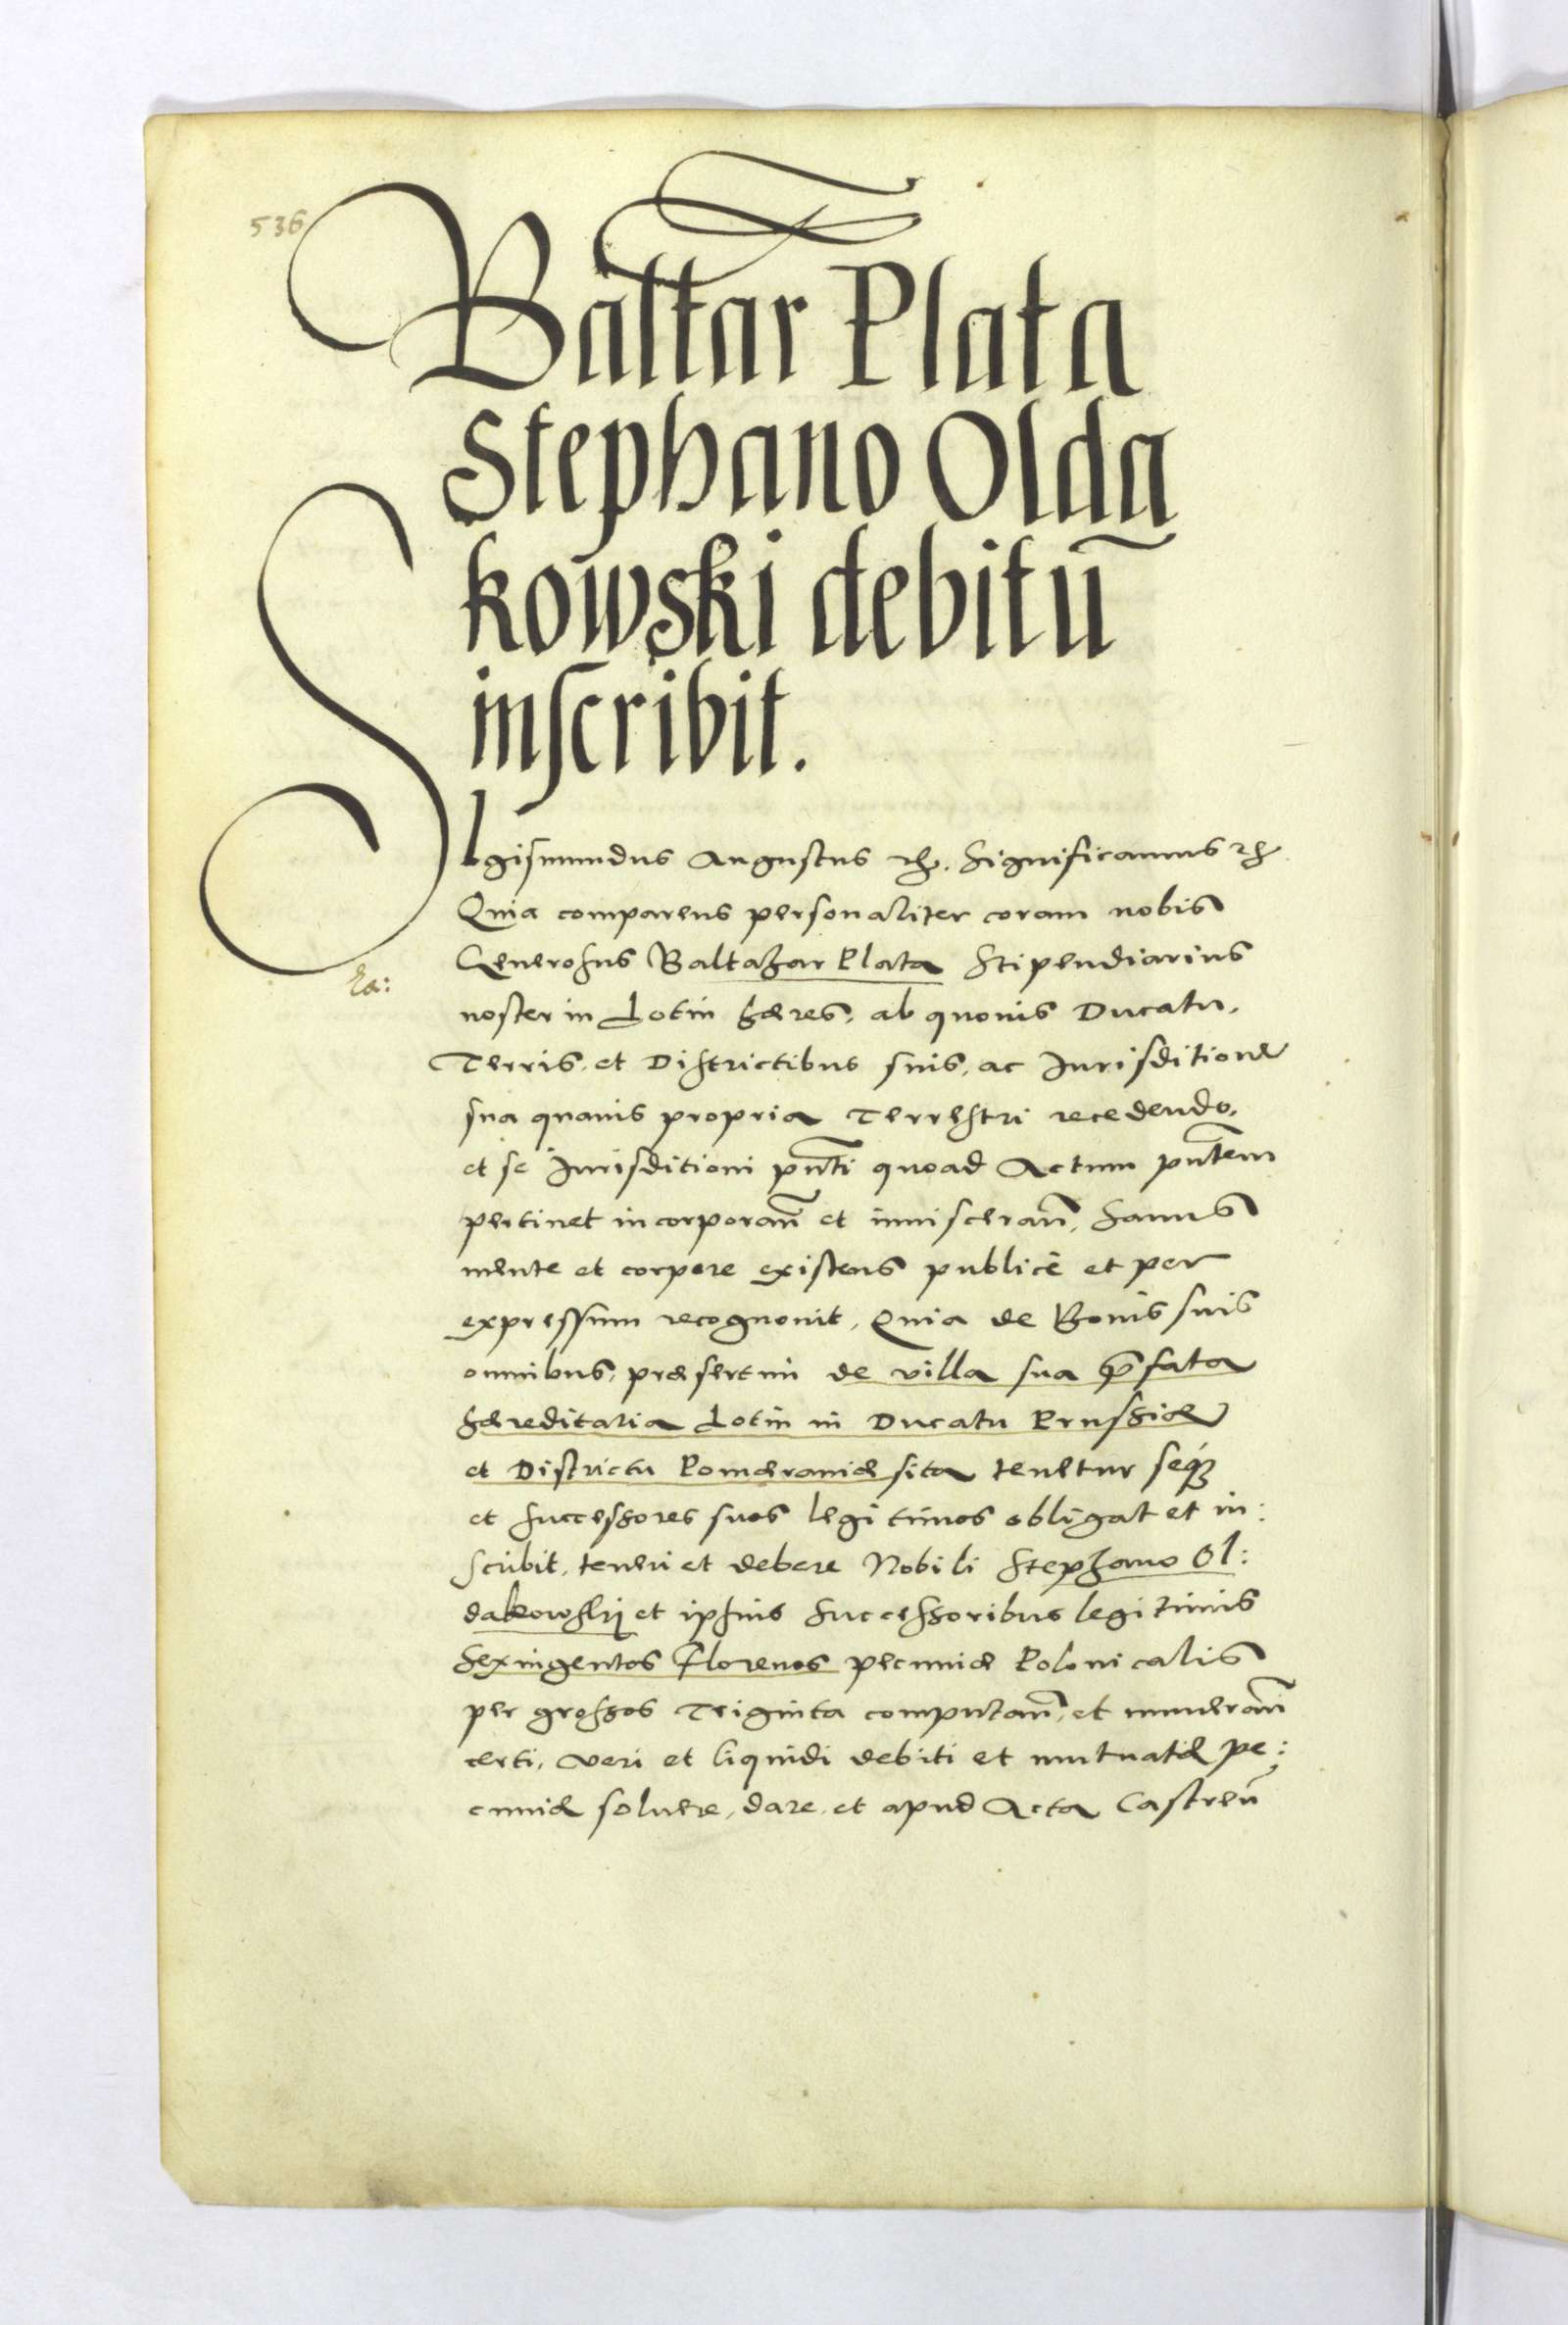 536
Baltar Plata
Stephano Olda
kowski debitū
inscribit.
SIgismundus Augustus etc. Significamus etc
Quia comparens personaliter coram nobis
Generosus Baltazar Plata Stipendiarius
noster in Lotin hæres, ab quovis Ducatu,
Terris, et Districtibus suis, ac Jurisditione
sua quavis propria Terrestri recedendo,
et se Jurisditioni pñti quoad Actum pñtem
pertinet incorporañ et inviscerañ, Sanus
mente et corpore existens publicè et per
expressum recognovit, Quia de Bonis suis
omnibus, præsertim de villa sua p̄fata
hæreditaria Lotin in Ducatu Prussiæ
et Districtu Pomæraniæ sita tenetur seq́ꝫ
et successores suos legitimos obligat et in:
scribit, teneri et debere Nobili Stephano Ol:
dakowskij et ipsius successoribus legitimis
Sexingentos Florenos pecuniæ Polonicalis
per grossos Triginta computañ, et numerañ
certi, veri et liquidi debiti et mutuatæ pe:
cuniæ solvere, dare, et apud Acta Castreñ